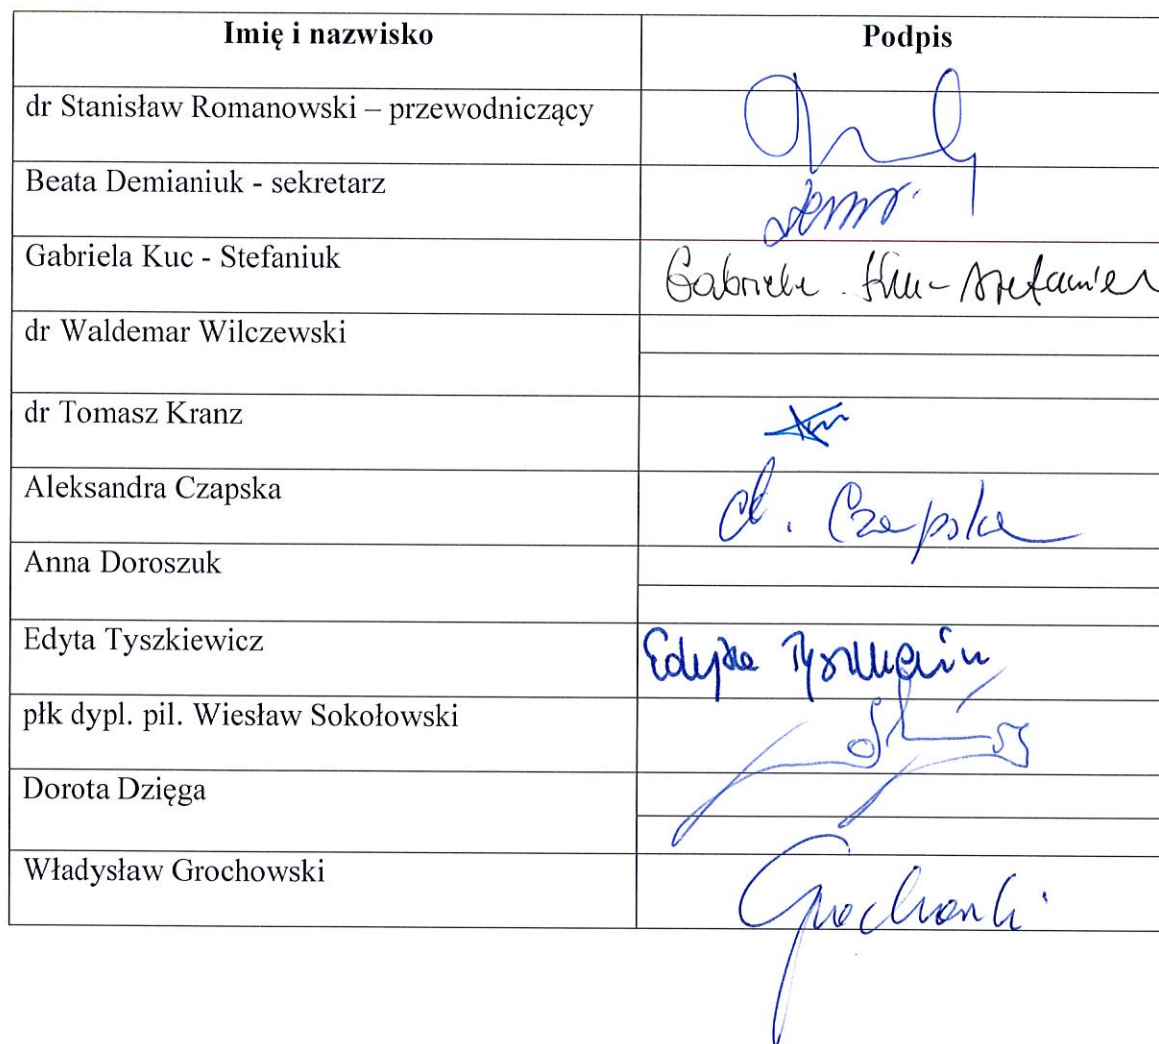 Imię i nazwisko Podpis
dr Stanisław Romanowski – przewodniczący
Beata Demianiuk - sekretarz
Gabriela Kuc - Stefaniuk
dr Waldemar Wilczewski
dr Tomasz Kranz
Aleksandra Czapska A. Czapska
Anna Doroszuk
Edyta Tyszkiewicz Edyta
płk dypl. pil. Wiesław Sokołowski
Dorota Dzięga
Władysław Grochowski Grochowski